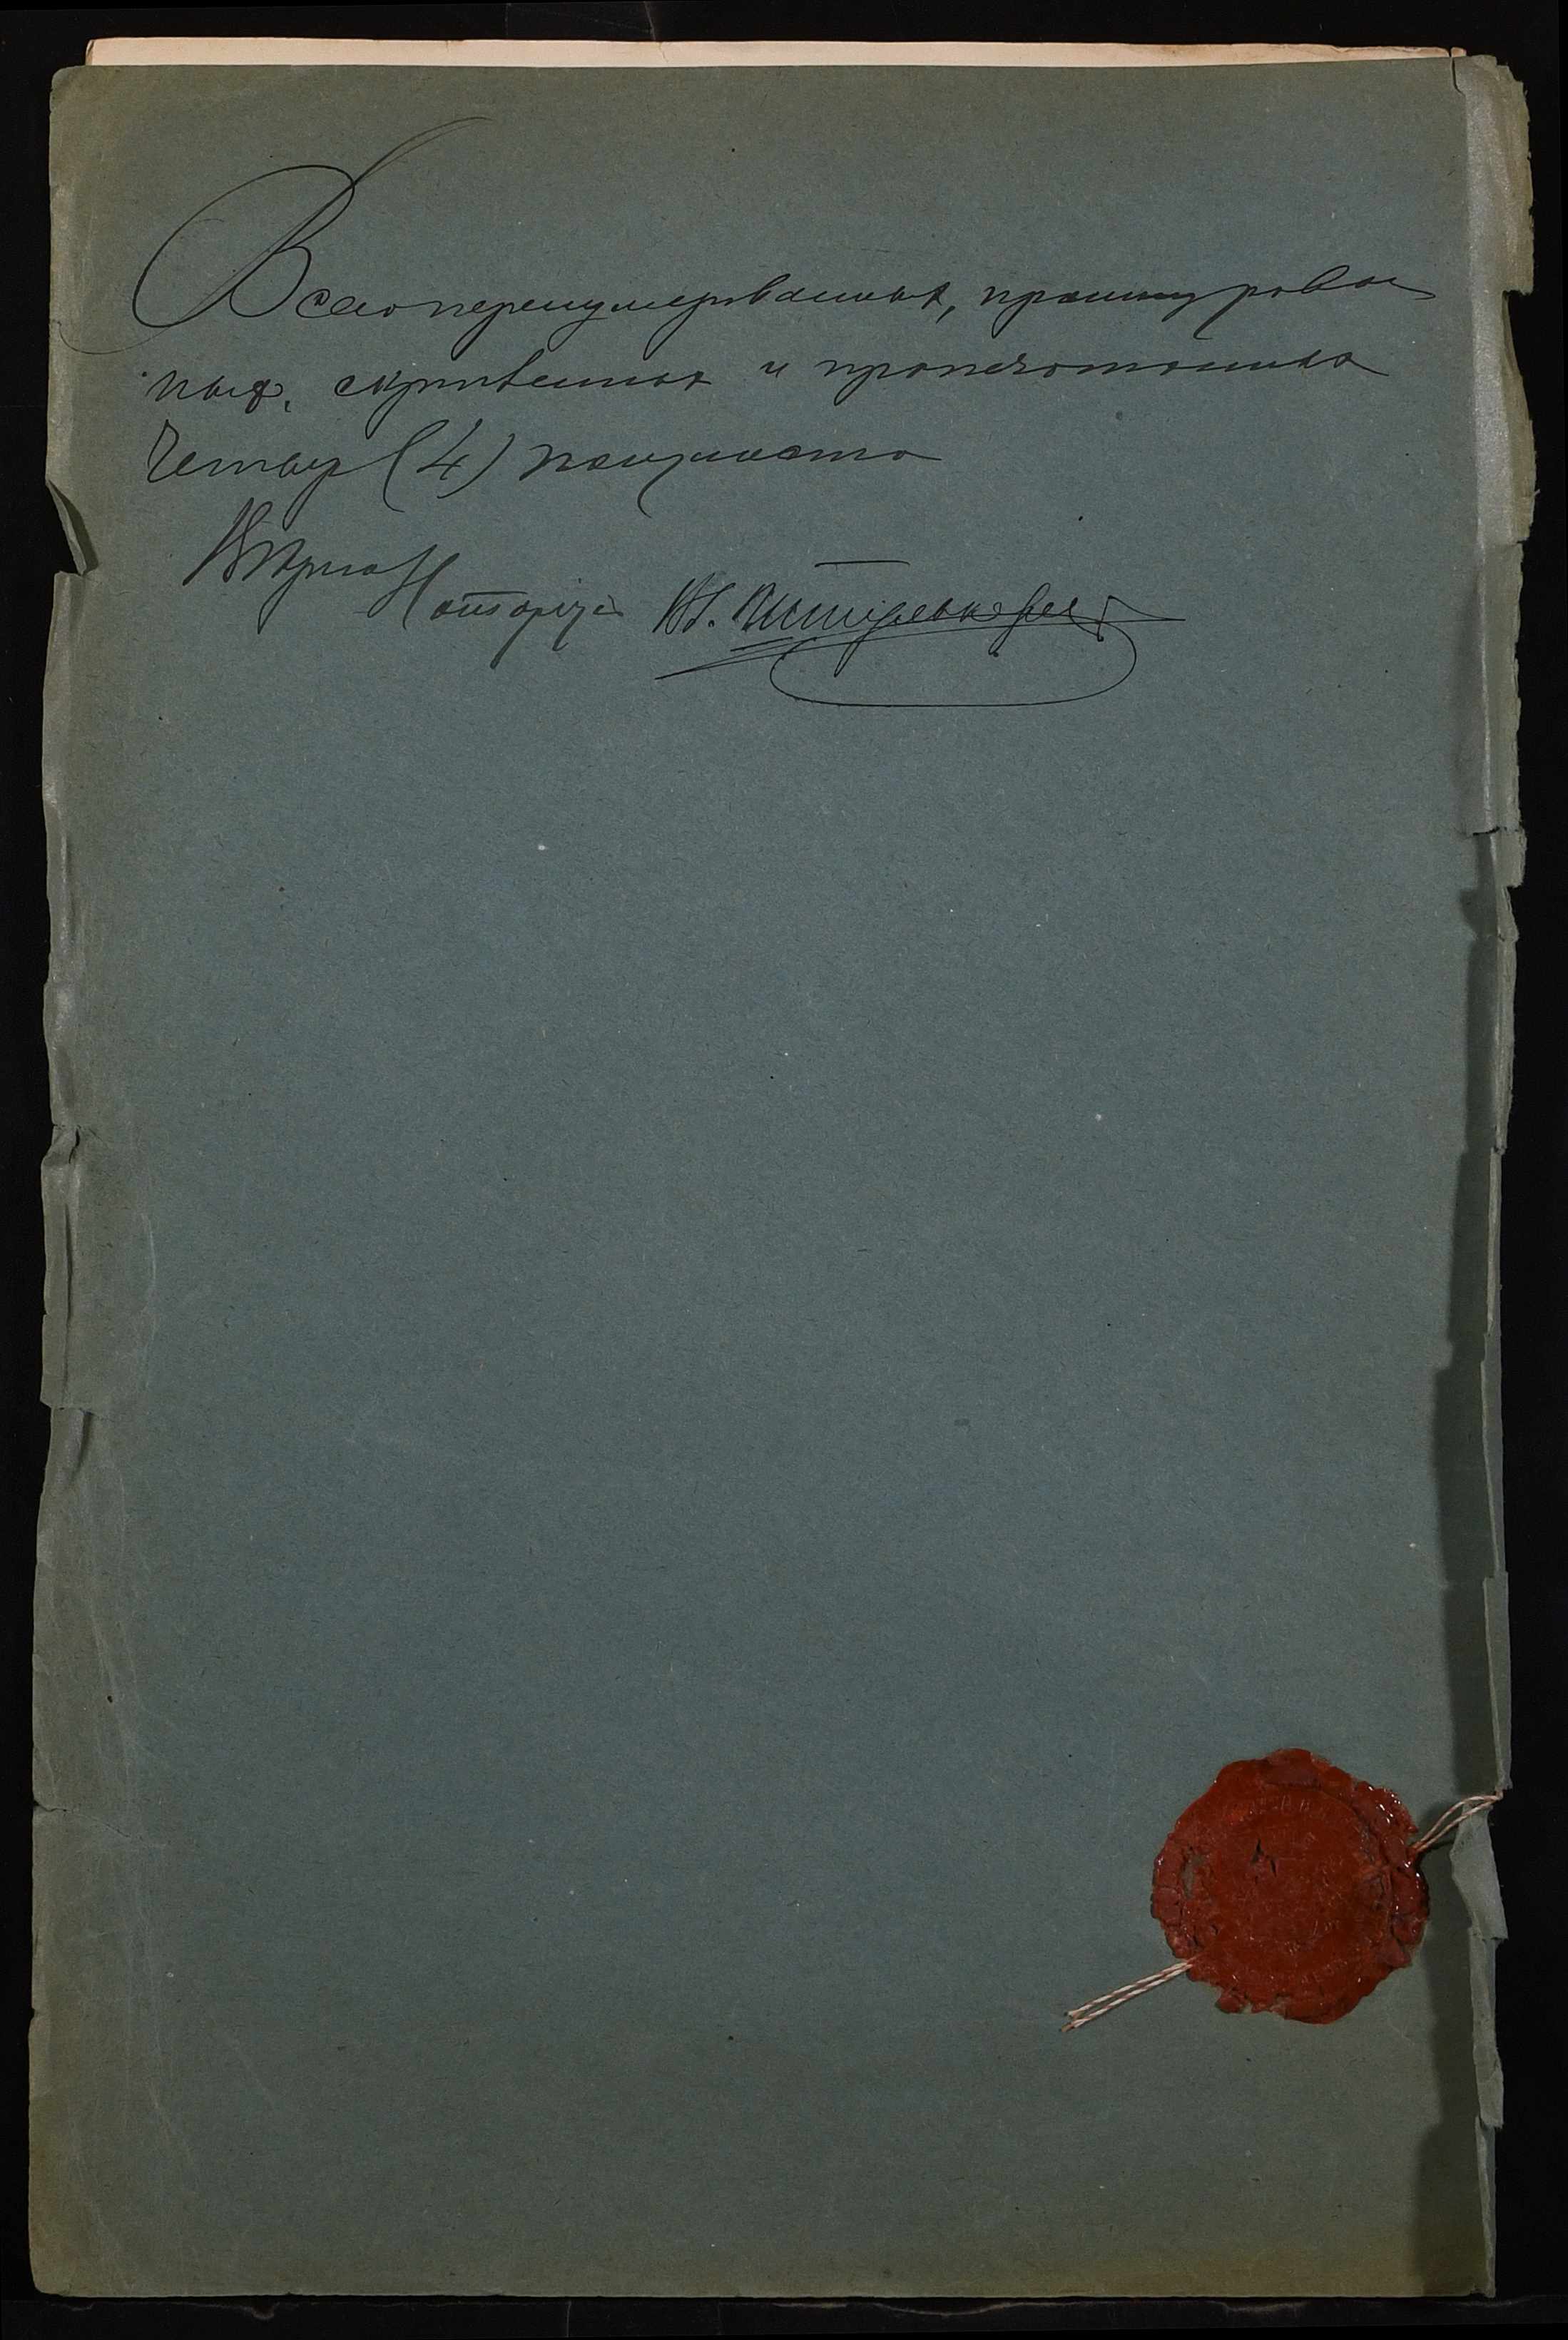 Всего перенумерованных, прошнурован
ных, скрепленных и пропечатанных
Четыре (4) полулиста
Нотаріусъ